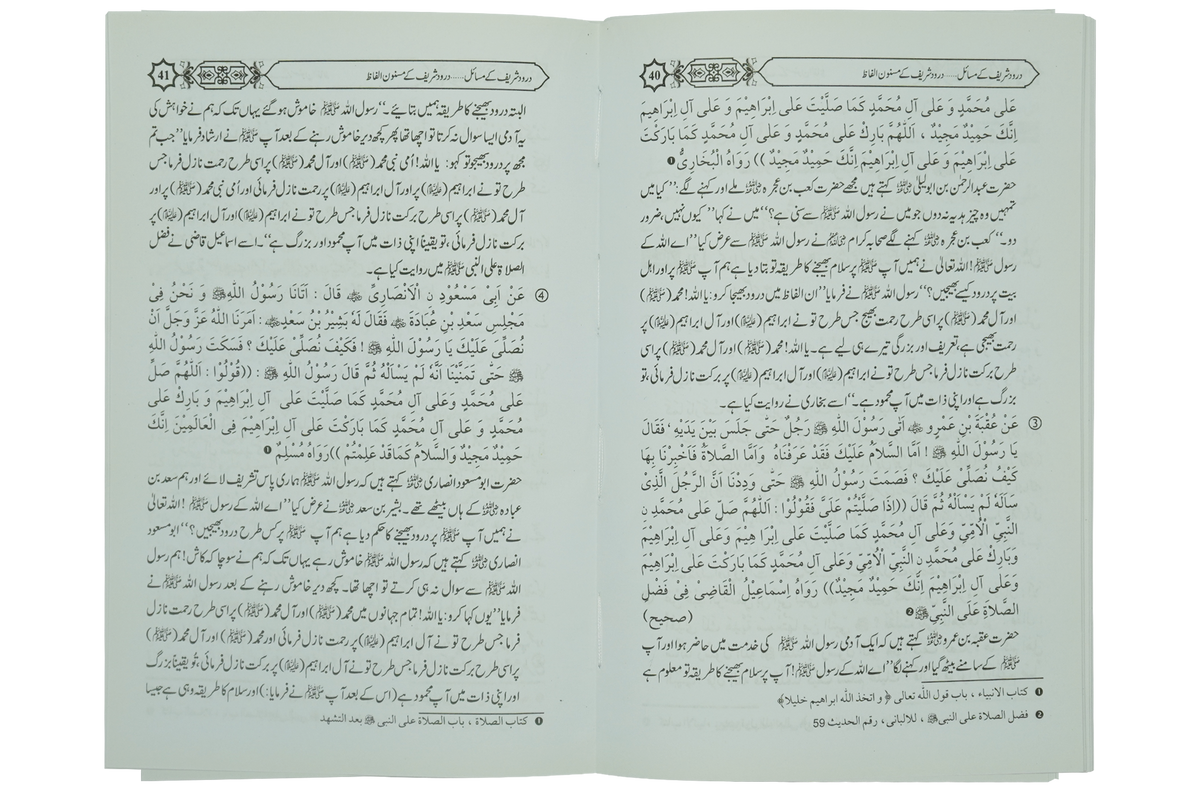 40
درود شریف کے مسائل ..... درود شریف کے مسنون الفاظ
عَلٰی مُحَمَّدٍ وَ عَلٰی آلِ مُحَمَّدٍ کَمَا صَلَّیْتَ عَلٰی اِبْرَاهِیْمَ وَ عَلٰی آلِ اِبْرَاهِیْمَ
اِنَّکَ حَمِیْدٌ مَجِیْدٌ ، اَللّٰهُمَّ بَارِکْ عَلٰی مُحَمَّدٍ وَ عَلٰی آلِ مُحَمَّدٍ کَمَا بَارَکْتَ
عَلٰی اِبْرَاهِیْمَ وَ عَلٰی آلِ اِبْرَاهِیْمَ اِنَّکَ حَمِیْدٌ مَجِیْدٌ )) رَوَاهُ الْبُخَارِیُّ ❶
حضرت عبدالرحمٰن بن ابولیلیٰ رحمہ اللہ کہتے ہیں مجھے حضرت کعب بن عجرہ رضی اللہ عنہ ملے اور کہنے لگے: ’’کیا میں
تمہیں وہ چیز ہدیہ نہ دوں جو میں نے رسول اللہ ﷺ سے سنی ہے؟‘‘ میں نے کہا’’ کیوں نہیں، ضرور
دو۔‘‘ کعب بن عجرہ رضی اللہ عنہ کہنے لگے صحابہ کرام رضی اللہ عنہم نے رسول اللہ ﷺ سے عرض کیا’’ اے اللہ کے
رسول ﷺ! اللہ تعالیٰ نے ہمیں آپ ﷺ پر سلام بھیجنے کا طریقہ تو بتا دیا ہے ہم آپ ﷺ پر اور اہل
بیت پر درود کیسے بھیجیں؟‘‘ رسول اللہ ﷺ نے فرمایا’’ ان الفاظ میں درود بھیجا کرو: یا اللہ! محمد (ﷺ)
اور آل محمد (ﷺ) پر اسی طرح رحمت بھیج جس طرح تو نے ابراہیم (علیہ السلام) اور آل ابراہیم (علیہ السلام) پر
رحمت بھیجی ہے، تعریف اور بزرگی تیرے ہی لیے ہے۔ یا اللہ! محمد (ﷺ) اور آل محمد (ﷺ) پر اسی
طرح برکت نازل فرما جس طرح تو نے ابراہیم (علیہ السلام) اور آل ابراہیم (علیہ السلام) پر برکت نازل فرمائی، تو
بزرگ ہے اور اپنی ذات میں آپ محمود ہے۔‘‘ اسے بخاری نے روایت کیا ہے۔
③ عَنْ عُقْبَةَ بْنِ عَمْرٍو رضی اللہ عنہ اَتٰی رَسُوْلَ اللّٰهِ ﷺ رَجُلٌ حَتّٰی جَلَسَ بَیْنَ یَدَیْهِ ، فَقَالَ
یَا رَسُوْلَ اللّٰهِ ﷺ ! اَمَّا السَّلاَمُ عَلَیْکَ فَقَدْ عَرَفْنَاهُ وَاَمَّا الصَّلاَةُ فَاَخْبِرْنَا بِهَا
کَیْفَ نُصَلِّیْ عَلَیْکَ ؟ فَصَمَتَ رَسُوْلُ اللّٰهِ ﷺ حَتّٰی وَدِدْنَا اَنَّ الرَّجُلَ الَّذِیْ
سَاَلَهُ لَمْ یَسْاَلْهُ ثُمَّ قَالَ ((اِذَا صَلَّیْتُمْ عَلَیَّ فَقُوْلُوْا : اَللّٰهُمَّ صَلِّ عَلٰی مُحَمَّدِ نِ
النَّبِیِّ الْاُمِّیِّ وَعَلٰی آلِ مُحَمَّدٍ کَمَا صَلَّیْتَ عَلٰی اِبْرَا هِیْمَ وَعَلٰی آلِ اِبْرَاهِیْمَ
وَبَارِکْ عَلٰی مُحَمَّدِ نِ النَّبِیِّ الْاُمِّیِّ وَعَلٰی آلِ مُحَمَّدٍ کَمَا بَارَکْتَ عَلٰی اِبْرَاهِیْمَ
وَعَلٰی آلِ اِبْرَاهِیْمَ اِنَّکَ حَمِیْدٌ مَجِیْدٌ)) رَوَاهُ اِسْمَاعِیْلُ الْقَاضِیْ فِیْ فَضْلِ
الصَّلاَةِ عَلَی النَّبِیِّ ﷺ ❷ (صحیح)
حضرت عقبہ بن عمرو رضی اللہ عنہ کہتے ہیں کہ ایک آدمی رسول اللہ ﷺ کی خدمت میں حاضر ہوا اور آپ
ﷺ کے سامنے بیٹھ گیا اور کہنے لگا’’ اے اللہ کے رسول ﷺ! آپ پر سلام بھیجنے کا طریقہ تو معلوم ہے
❶ کتاب الانبیاء ، باب قول اللہ تعالی ﴿ و اتخذ اللہ ابراهیم خلیلا﴾
❷ فضل الصلاة علی النبی ﷺ ، للالبانی ، رقم الحدیث 59
41
درود شریف کے مسائل ..... درود شریف کے مسنون الفاظ
البتہ درود بھیجنے کا طریقہ ہمیں بتائیے۔‘‘ رسول اللہ ﷺ خاموش ہو گئے یہاں تک کہ ہم نے خواہش کی
یہ آدمی ایسا سوال نہ کرتا تو اچھا تھا پھر کچھ دیر خاموش رہنے کے بعد آپ ﷺ نے ارشاد فرمایا’’ جب تم
مجھ پر درود بھیجو تو کہو: یا اللہ! اُمی نبی محمد (ﷺ) اور آل محمد (ﷺ) پر اسی طرح رحمت نازل فرما جس
طرح تو نے ابراہیم (علیہ السلام) پر اور آل ابراہیم (علیہ السلام) پر رحمت نازل فرمائی اور اُمی نبی محمد (ﷺ) پر اور
آل محمد (ﷺ) پر اسی طرح برکت نازل فرما جس طرح تو نے ابراہیم (علیہ السلام) اور آل ابراہیم (علیہ السلام) پر
برکت نازل فرمائی، تو یقیناً اپنی ذات میں آپ محمود اور بزرگ ہے‘‘۔ اسے اسماعیل قاضی نے فضل
الصلاۃ علی النبی ﷺ میں روایت کیا ہے۔
④ عَنْ اَبِیْ مَسْعُوْدٍ نِ الْاَنْصَارِیِّ رضی اللہ عنہ قَالَ : اَتَانَا رَسُوْلُ اللّٰهِ ﷺ وَ نَحْنُ فِیْ
مَجْلِسِ سَعْدِ بْنِ عُبَادَةَ رضی اللہ عنہ فَقَالَ لَهُ بَشِیْرُ بْنُ سَعْدٍ رضی اللہ عنہ : اَمَرَنَا اللّٰهُ عَزَّ وَجَلَّ اَنْ
نُصَلِّیَ عَلَیْکَ یَا رَسُوْلَ اللّٰهِ ﷺ ! فَکَیْفَ نُصَلِّیْ عَلَیْکَ ؟ فَسَکَتَ رَسُوْلُ اللّٰهِ
ﷺ حَتّٰی تَمَنَّیْنَا اَنَّهُ لَمْ یَسْاَلْهُ ثُمَّ قَالَ رَسُوْلُ اللّٰهِ ﷺ : ((قُوْلُوْا : اَللّٰهُمَّ صَلِّ
عَلٰی مُحَمَّدٍ وَعَلٰی آلِ مُحَمَّدٍ کَمَا صَلَّیْتَ عَلٰی آلِ اِبْرَاهِیْمَ وَ بَارِکْ عَلٰی
مُحَمَّدٍ وَ عَلٰی آلِ مُحَمَّدٍ کَمَا بَارَکْتَ عَلٰی آلِ اِبْرَاهِیْمَ فِی الْعَالَمِیْنَ اِنَّکَ
حَمِیْدٌ مَجِیْدٌ وَالسَّلاَمُ کَمَا قَدْ عَلِمْتُمْ )) رَوَاهُ مُسْلِمٌ ❶
حضرت ابو مسعود انصاری رضی اللہ عنہ کہتے ہیں کہ رسول اللہ ﷺ ہماری پاس تشریف لائے اور ہم سعد بن
عبادہ رضی اللہ عنہ کے ہاں بیٹھے تھے۔ بشیر بن سعد رضی اللہ عنہ نے عرض کیا’’ اے اللہ کے رسول ﷺ! اللہ تعالیٰ
نے ہمیں آپ ﷺ پر درود بھیجنے کا حکم دیا ہے ہم آپ ﷺ پر کس طرح درود بھیجیں؟‘‘ ابو مسعود
انصاری رضی اللہ عنہ کہتے ہیں کہ رسول اللہ ﷺ خاموش رہے یہاں تک کہ ہم نے سوچا کہ کاش! ہم رسول
اللہ ﷺ سے سوال نہ ہی کرتے تو اچھا تھا۔ کچھ دیر خاموش رہنے کے بعد رسول اللہ ﷺ نے
فرمایا’’ یوں کہا کرو: یا اللہ! تمام جہانوں میں محمد (ﷺ) اور آل محمد (ﷺ) پر اسی طرح رحمت نازل
فرما جس طرح تو نے آل ابراہیم (علیہ السلام) پر رحمت نازل فرمائی اور محمد (ﷺ) اور آل محمد (ﷺ)
پر اسی طرح برکت نازل فرما جس طرح تو نے آل ابراہیم (علیہ السلام) پر برکت نازل فرمائی، تُو یقیناً بزرگ
اور اپنی ذات میں آپ محمود ہے (اس کے بعد آپ ﷺ نے فرمایا:) اور سلام کا طریقہ وہی ہے جیسا
❶ کتاب الصلاة ، باب الصلاة علی النبی ﷺ بعد التشهد